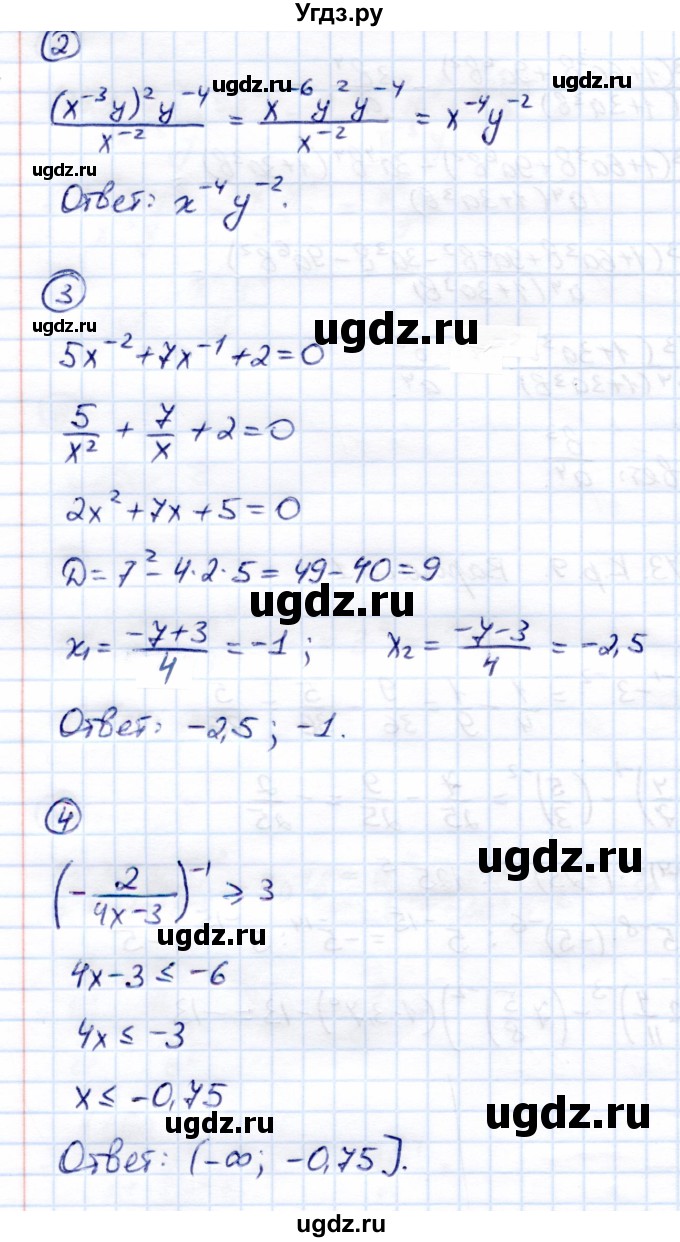 Угдз.ру
②
(x⁻³y)²y⁻⁴ / x⁻² = x⁻⁶y²y⁻⁴ / x⁻² = x⁻⁴y⁻²
ugdz.ru
ugdz.ru
ugdz.ru
Ответ: x⁻⁴y⁻².
③
ugdz.ru
ugdz.ru
5x⁻²+7x⁻¹+2=0
5/x² + 7/x + 2=0
2x²+7x+5=0
D=7²-4·2·5=49-40=9
ugdz.ru
x₁ = (-7+3)/4 = -1; x₂ = (-7-3)/4 = -2,5
Ответ: -2,5; -1.
④
ugdz.ru
(-2/(4x-3))⁻¹ ⩾ 3
ugdz.ru
4x-3 ≤ -6
4x ≤ -3
x ≤ -0,75
ugdz.ru
ugdz.ru
Ответ: (-∞; -0,75].
ugdz.ru